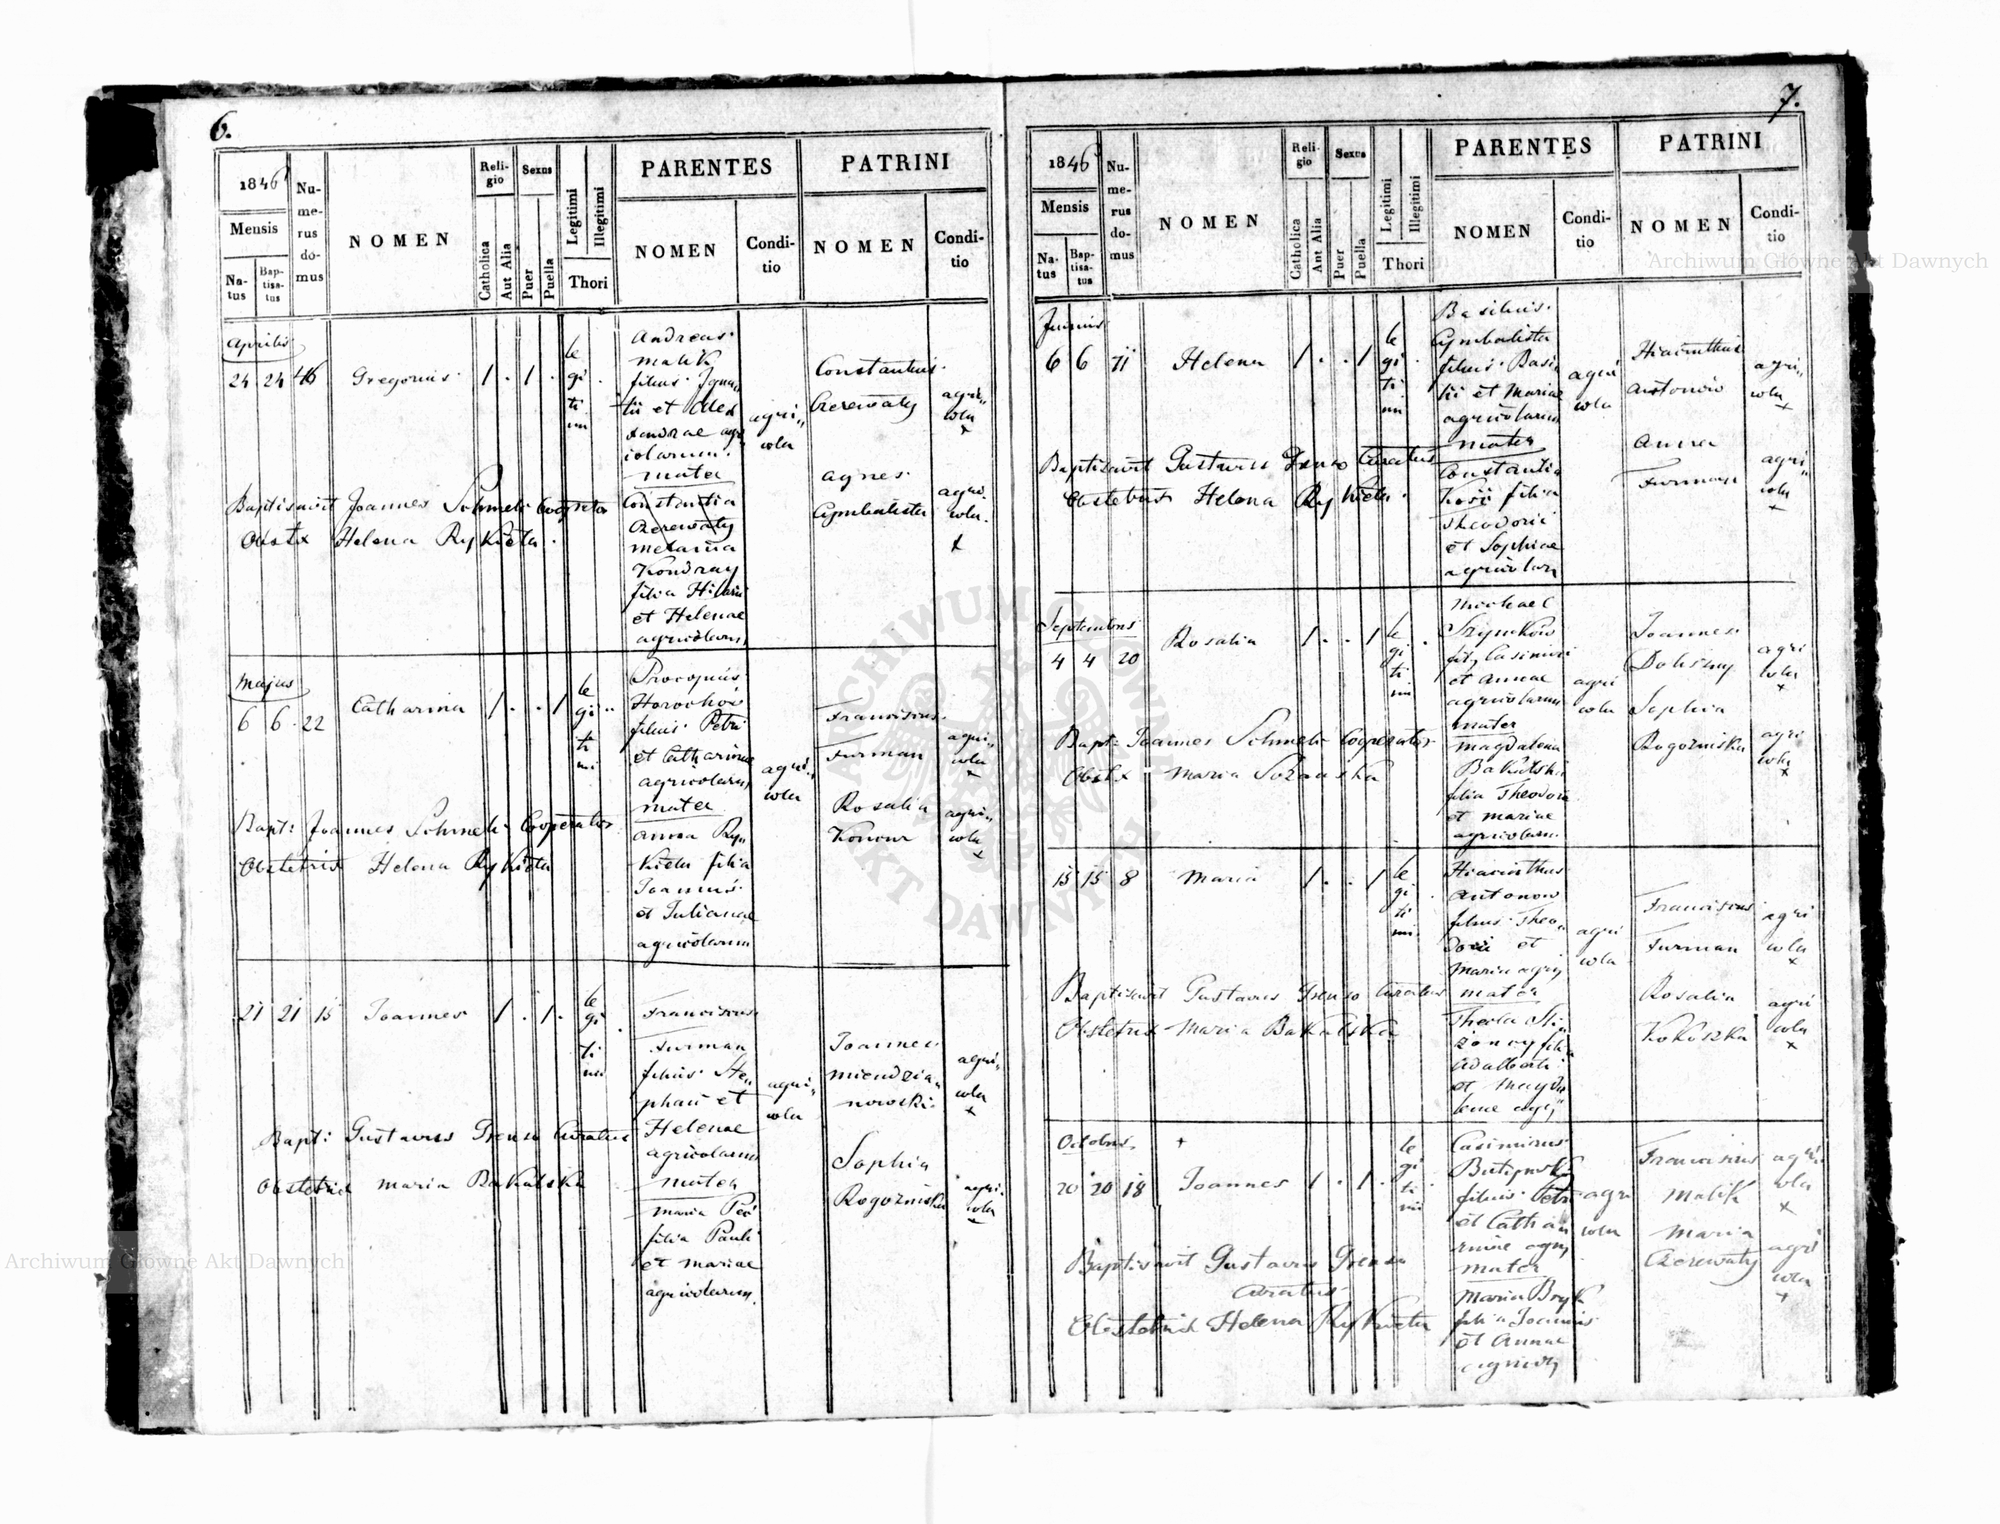 6.
1846
Mensis
Na-
tus
Bap-
tisa-
tus
Nu-
me-
rus
do-
mus
NOMEN
Reli-
gio
Catholica
Aut Alia
Sexus
Puer
Puella
Legitimi
Illegitimi
Thori
PARENTES
NOMEN
Condi-
tio
PATRINI
NOMEN
Condi-
tio
Aprilis
24 24 46 Gregorius 1 . 1 .
le
gi
ti
mi
Andreas
Malik
filius Igna
tii et Alex
andrae agri
colarum
mater
Constantia
Czerewaty
Melania
Kondray
filia Hilarii
et Helenae
agricolarum
agri"
cola
Constantinus
Czerewaty
agri"
cola
x
Agnes
Cymbalista
agri
cola
x
Baptisavit Joannes Schmelz Cooperator
Obstx Helena Rykieta
Majus
6 6 22 Catharina 1 . . 1
le
gi
ti
mi
Procopius
Horochów
filius Petri
et Catharinae
agricolarum
mater
Anna Ry"
kieta filia
Joannis
et Julianae
agricolarum
agri"
cola
Franciscus
Furman
agri"
cola
x
Rosalia
Konour
agri"
cola
x
Bapt: Joannes Schmelz Cooperator
Obstetrix Helena Rykieta
21 21 15 Joannes 1 . 1 .
le
gi
ti
mi
Franciscus
Furman
filius Ste"
phani et
Helenae
agricolarum
mater
Maria Peć
filia Pauli
et Mariae
agricolarum
agri"
cola
Joannes
Miendzia"
nowski
agri"
cola
x
Sophia
Rogozniska
agri
cola
x
Bapt: Gustavus Curatus
Obstetrix Maria Bakalska
7.
1846
Mensis
Na-
tus
Bap-
tisa-
tus
Nu-
me-
rus
do-
mus
NOMEN
Reli-
gio
Catholica
Aut Alia
Sexus
Puer
Puella
Legitimi
Illegitimi
Thori
PARENTES
NOMEN
Condi-
tio
PATRINI
NOMEN
Condi-
tio
Junius
6 6 11 Helena 1 . . 1
le
gi
ti
mi
Basilius
Cymbalista
filius Basi
lii et Mariae
agricolarum
mater
Constantia
filia
Theodorii
et Sophiae
agricolarum
agri
cola
Hiacinthus
Antonów
agri"
cola
x
Anna
Furman
agri"
cola
x
Baptisavit Gustavus Curatus
Obstetrix Helena Rykieta
Septembris
4 4 20 Rosalia 1 . . 1
le
gi
ti
mi
Michael
Szynków
Casimiri
et Annae
agricolarum
mater
Magdalena
Bakalska
filia Theodori
et Mariae
agricolarum
agri
cola
Joannes
Doliszny
agri
cola
x
Sophia
Rogozniska
agri
cola
x
Bapt: Joannes Schmelz Cooperator
Obstx Maria
15 15 8 Maria 1 . . 1
le
gi
ti
mi
Hiacinthus
Antonow
filius Theo"
dorii et
Maria
mater
Thecla
filia
Adalberti
et Magda
lenae
agri
cola
Franciscus
Furman
agri
cola
x
Rosalia
Kokoszka
agri
cola
x
Baptisavit Gustavus Curatus
Obstetrix Maria Bakalska
Octobris +
20 20 18 Joannes 1 . 1 .
le
gi
ti
mi
Casimirus
filius Petri
et Catha
rinae
mater
Maria Bryk
filia Joannis
et Annae
agri
cola
Franciscus
Malik
agri
cola
x
Maria
Czerewaty
agri
cola
x
Baptisavit Gustavus
Curatus
Obstetrix Helena Rykieta
ARCHIWUM GŁÓWNE AKT DAWNYCH
Archiwum Główne Akt Dawnych
Archiwum Główne Akt Dawnych